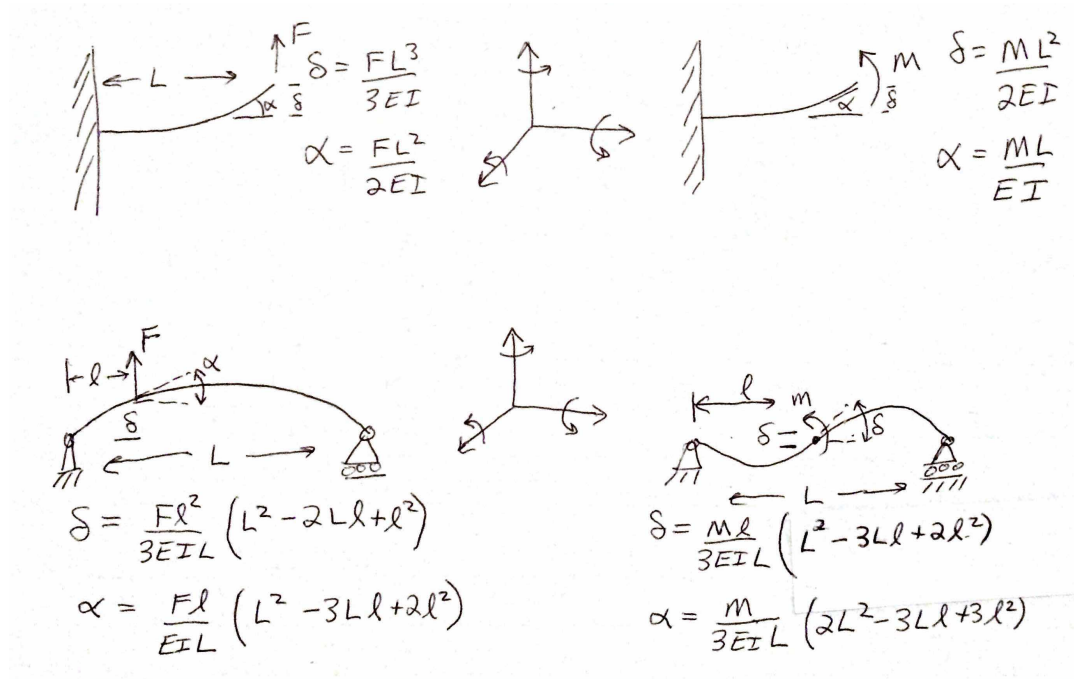 F
L
α δ
δ = FL³/3EI
α = FL²/2EI
M
α δ
δ = ML²/2EI
α = ML/EI
F
l
α
δ
L
δ = Fl²/3EIL (L² - 2Ll + l²)
α = Fl/EIL (L² - 3Ll + 2l²)
l
m
δ
δ
L
δ = Ml/3EIL (L² - 3Ll + 2l²)
α = M/3EIL (2L² - 3Ll + 3l²)